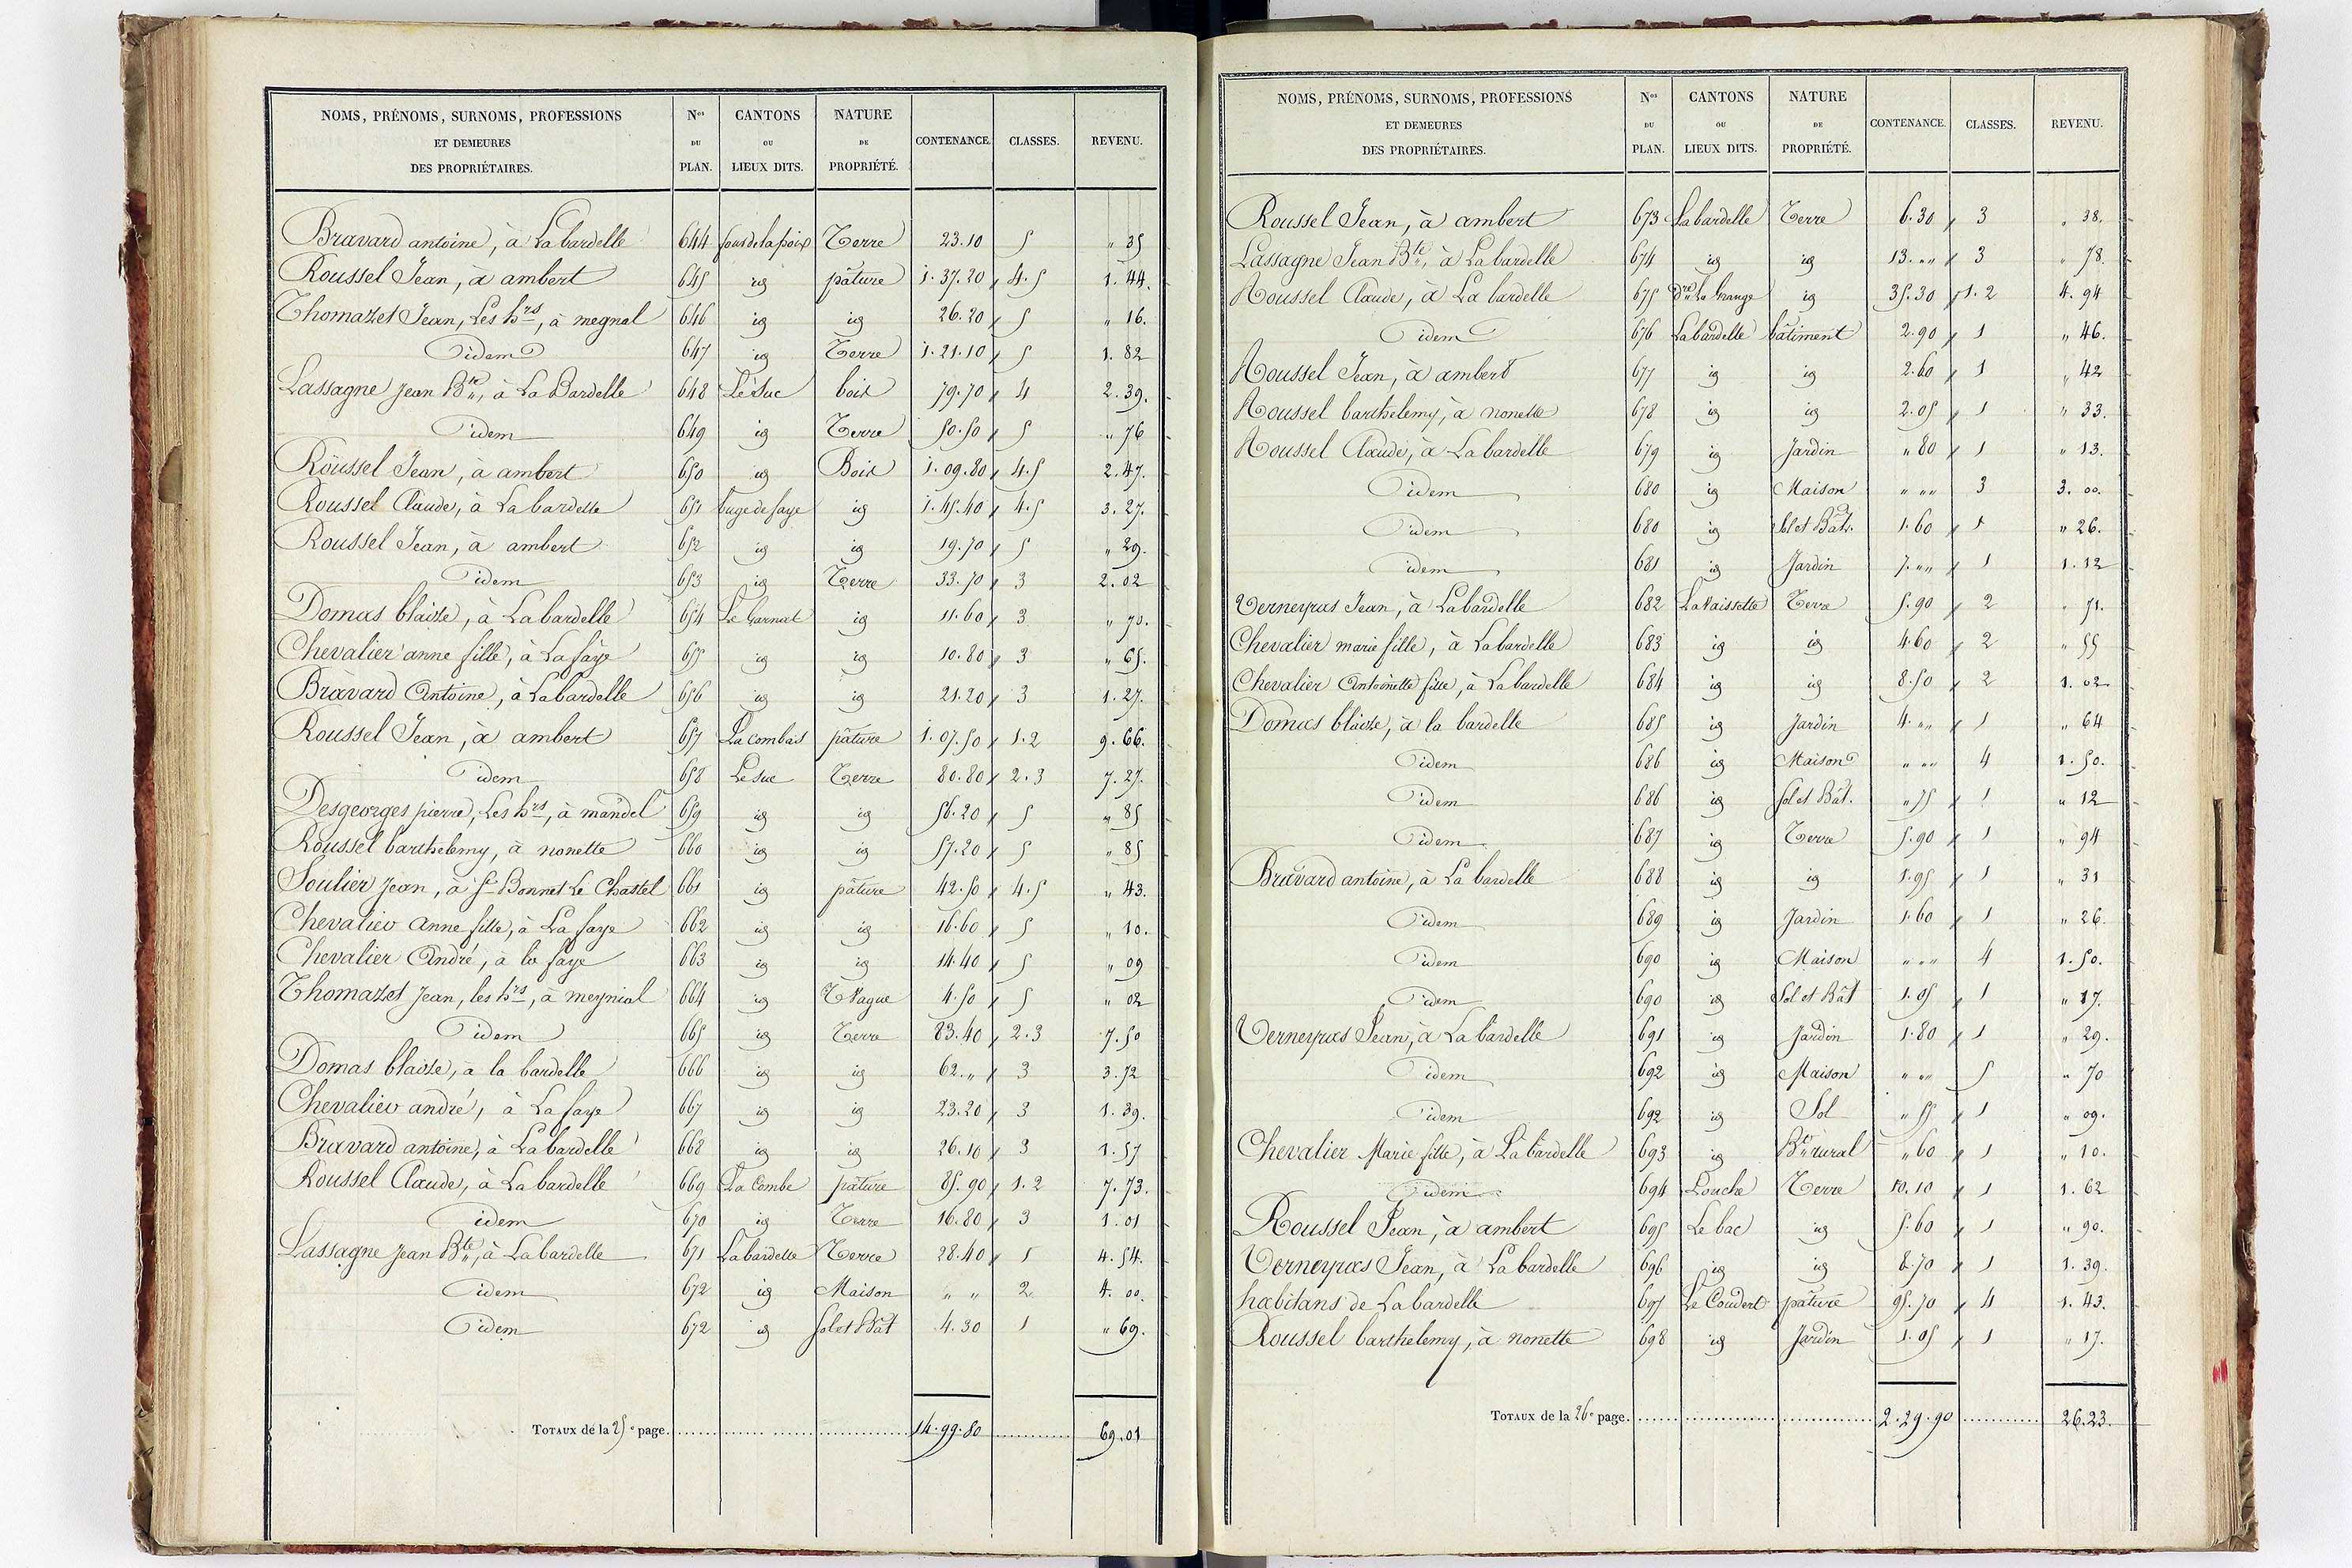 NOMS, PRÉNOMS, SURNOMS, PROFESSIONS ET DEMEURES DES PROPRIÉTAIRES. Nos DU PLAN. CANTONS OU LIEUX DITS. NATURE DE PROPRIÉTÉ. CONTENANCE. CLASSES. REVENU.
Bravard antoine, à La bardelle 644 Terre 23.10 5 " 35
Roussel Jean, à ambert 645 id pâture 1.37.20 4.5 1.44.
Thomazet Jean, Les hrs, à megnal 646 id id 26.20 5 " 16.
idem 647 id Terre 1.21.10 5 1.82
Lassagne Jean Bte, à La Bardelle 648 Le Suc bois 79.70 4 2.39.
idem 649 id Terre 50.50 5 " 76
Roussel Jean, à ambert 650 id Bois 1.09.80 4.5 2.47.
Roussel Claude, à La bardelle 651 buge de faye id 1.45.40 4.5 3.27.
Roussel Jean, à ambert 652 id id 19.70 5 " 29.
idem 653 id Terre 33.70 3 2.02
Domas blaize, à La bardelle 654 Le Garnat id 11.60 3 " 70.
Chevalier anne fille, à La faye 655 id id 10.80 3 " 65.
Bravard Antoine, à La bardelle 656 id id 21.20 3 1.27.
Roussel Jean, à ambert 657 La combas pâture 1.07.50 1.2 9.66.
idem 658 Le suc Terre 80.80 2.3 7.27.
Desgeorges pierre, Les hrs, à mandel 659 id id 56.20 5 " 85
Roussel barthelemy, à nonette 660 id id 57.20 5 " 85
Soulier Jean, à St Bonnet Le Chastel 661 id pâture 42.50 4.5 " 43.
Chevalier Anne fille, à La faye 662 id id 16.60 5 " 10.
Chevalier André, à la faye 663 id id 14.40 5 " 09
Thomazet Jean, les hrs, à meynial 664 id T. Vague 4.50 5 " 02
idem 665 id Terre 83.40 2.3 7.50
Domas blaize, à la bardelle 666 id id 62." 3 3.72
Chevalier andré, à La faye 667 id id 23.20 3 1.39.
Bravard antoine, à La bardelle 668 id id 26.10 3 1.57
Roussel Claude, à La bardelle 669 La Combe pâture 85.90 1.2 7.73.
idem 670 id Terre 16.80 3 1.01
Lassagne Jean Bte, à La bardelle 671 La bardelle Terre 28.40 1 4.54.
idem 672 id Maison " " 2 4.00.
idem 672 id sol et Bât 4.30 1 " 69.
TOTAUX de la 25e page. 14.99.80 69.01
NOMS, PRÉNOMS, SURNOMS, PROFESSIONS ET DEMEURES DES PROPRIÉTAIRES. Nos DU PLAN. CANTONS OU LIEUX DITS. NATURE DE PROPRIÉTÉ. CONTENANCE. CLASSES. REVENU.
Roussel Jean, à ambert 673 La bardelle Terre 6.30 3 " 38.
Lassagne Jean Bte, à La bardelle 674 id id 13. " " 3 " 78.
Roussel Claude, à La bardelle 675 dre La Grange id 35.30 1.2 4.94
idem 676 La bardelle bâtiment 2.90 1 " 46.
Roussel Jean, à ambert 677 id id 2.60 1 " 42
Roussel barthelemy, à nonette 678 id id 2.05 1 " 33.
Roussel Claude, à La bardelle 679 id Jardin " 80 1 " 13.
idem 680 id Maison " " " 3 3.00.
idem 680 id Sol et Bât. 1.60 1 " 26.
idem 681 id Jardin 7. " " 1 1.12
Verneyras Jean, à La bardelle 682 La Vaissette Terre 5.90 2 " 71.
Chevalier marie fille, à La bardelle 683 id id 4.60 2 " 55
Chevalier Antoinette fille, à La bardelle 684 id id 8.50 2 1.02.
Domas blaize, à la bardelle 685 id Jardin 4. " " 1 " 64
idem 686 id Maison " " " 4 1.50.
idem 686 id sol et Bât. " 75 1 " 12
idem 687 id Terre 5.90 1 " 94
Bravard antoine, à La bardelle 688 id id 1.95 1 " 31
idem 689 id Jardin 1.60 1 " 26.
idem 690 id Maison " " " 4 1.50.
idem 690 id Sol et Bât 1.05 1 " 17.
Verneyras Jean, à La bardelle 691 id Jardin 1.80 1 " 29.
idem 692 id Maison " " " 5 " 70
idem 692 id Sol " 55 1 " 09.
Chevalier Marie fille, à La bardelle 693 id Bt rural " 60 1 " 10.
idem 694 Louche Terre 10.10 1 1.62
Roussel Jean, à ambert 695 Le bac id 5.60 1 " 90.
Verneyras Jean, à La bardelle 696 id id 8.70 1 1.39.
habitans de La bardelle 697 Le Coudert pâture 95.70 4 1.43.
Roussel barthelemy, à nonette 698 id Jardin 1.05 1 " 17.
TOTAUX de la 26e page. 2.29.90 26.23.